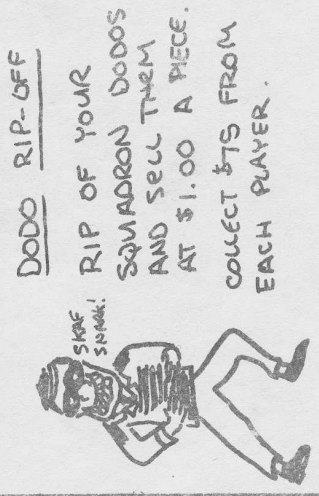 DODO RIP-OFF
RIP OF YOUR
SQUADRON DODOS
AND SELL THEM
AT $1.00 A PIECE.
COLLECT $75 FROM
EACH PLAYER.
SKAF
SNARK!